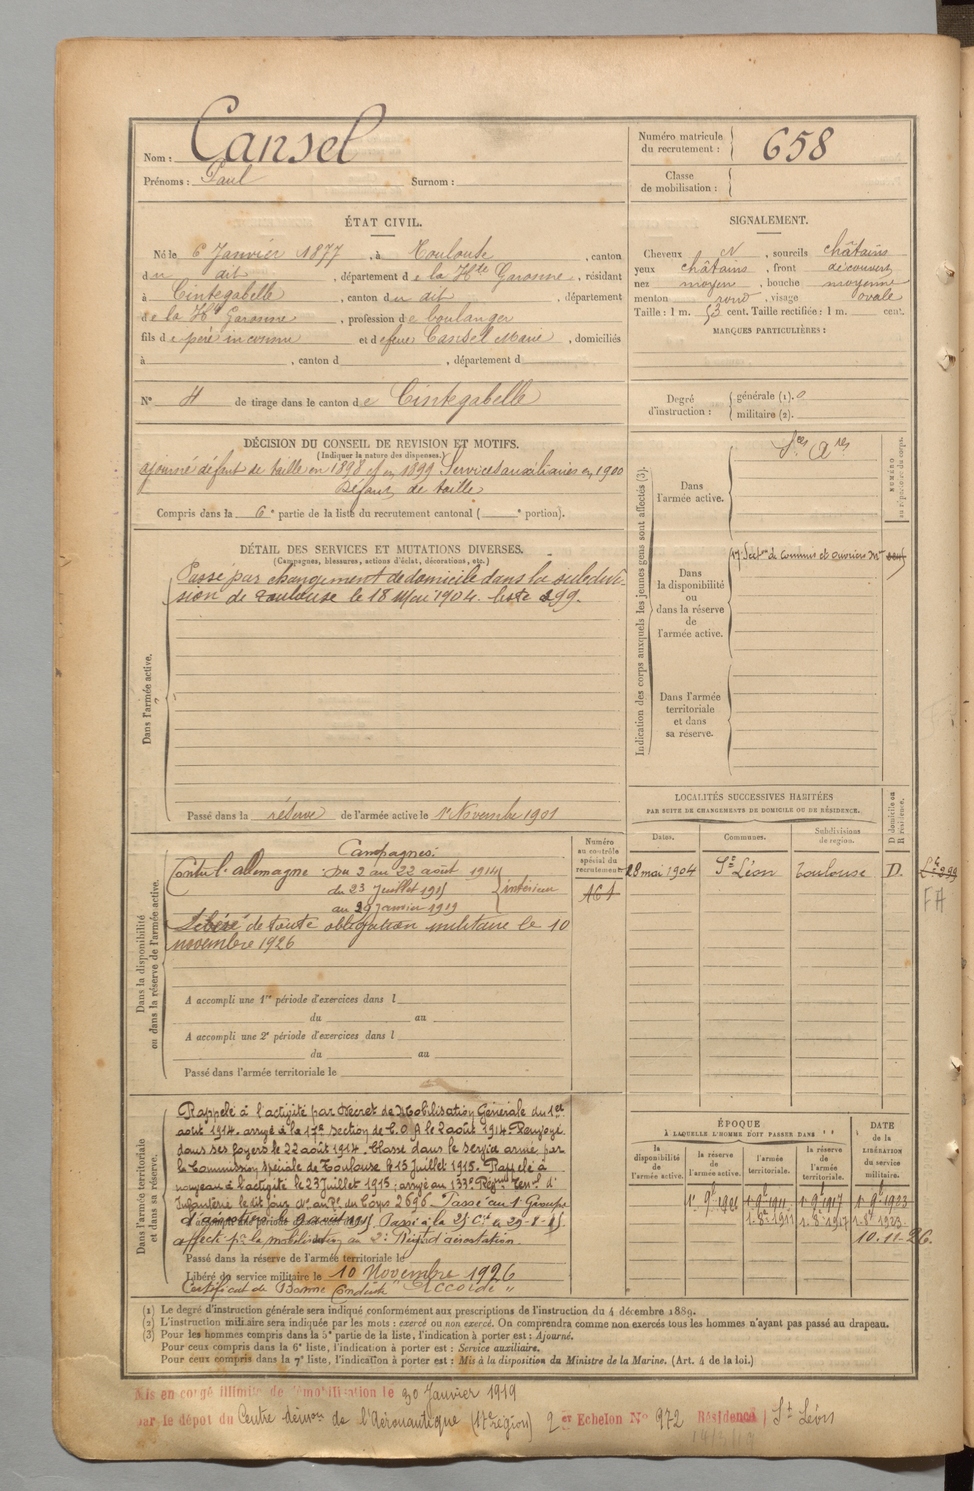 Nom : Cansel
Prénoms : Paul Surnom :
Numéro matricule du recrutement : 658
Classe de mobilisation :
ÉTAT CIVIL.
Né le 6 Janvier 1877, à Toulouse, canton
du dit, département de la Hte Garonne, résidant
à Cintegabelle, canton du dit, département
de la Hte Garonne, profession de boulanger
fils de père inconnu et de feue Cansel Marie, domiciliés
à , canton d , département d
N° 4 de tirage dans le canton de Cintegabelle
SIGNALEMENT.
Cheveux N, sourcils châtains
yeux châtains, front découvert
nez moyen, bouche moyenne
menton rond, visage ovale
Taille : 1 m. 53 cent. Taille rectifiée : 1 m. cent.
MARQUES PARTICULIÈRES :
Degré d'instruction : générale (1). 0
militaire (2).
DÉCISION DU CONSEIL DE REVISION ET MOTIFS.
(Indiquer la nature des dispenses.)
ajourné défaut de taille en 1898 et en 1899 Services auxiliaires en 1900
Défaut de taille
Compris dans la 6e partie de la liste du recrutement cantonal ( e portion).
DÉTAIL DES SERVICES ET MUTATIONS DIVERSES.
(Campagnes, blessures, actions d'éclat, décorations, etc.)
Dans l'armée active.
Passé par changement de domicile dans la subdivi-
sion de Toulouse le 18 Mai 1904. liste 299.
Passé dans la réserve de l'armée active le 1er Novembre 1901
Indication des corps auxquels les jeunes gens sont affectés (3).
NUMÉRO au répertoire du corps.
Dans l'armée active.
Sces Ares
Dans la disponibilité ou dans la réserve de l'armée active.
17e Secton de commis et ouvriers Mres
Dans l'armée territoriale et dans sa réserve.
Dans la disponibilité ou dans la réserve de l'armée active.
Campagnes:
Contre l'allemagne : Du 2 au 22 août 1914
du 23 Juillet 1915
au 29 Janvier 1919
intérieur
Libéré de toute obligation militaire le 10
novembre 1926
Numéro au contrôle spécial du recrutement
161
A accompli une 1re période d'exercices dans l
du au
A accompli une 2e période d'exercices dans l
du au
Passé dans l'armée territoriale le
LOCALITÉS SUCCESSIVES HABITÉES
PAR SUITE DE CHANGEMENTS DE DOMICILE OU DE RÉSIDENCE.
Dates. Communes. Subdivisions de région. D domicile ou R résidence.
28 mai 1904 St Léon Toulouse D.
Dans l'armée territoriale et dans sa réserve.
Rappelé à l'activité par Décret de Mobilisation Générale du 1er
août 1914. arrivé à la 17e section de C.O.A le 2 août 1914 Renvoyé
dans ses foyers le 22 août 1914. Classé dans le service armé par
la Commission spéciale de Toulouse le 15 Juillet 1915. Rappelé à
nouveau à l'activité le 23 Juillet 1915; arrivé au 133e Régimt Terrl d'
Infanterie le dit jour No au Re du Corps 2696 - Passé au 1er Groupe
affecté pr la mobilisation au 2e Régt d'aérostation.
Passé dans la réserve de l'armée territoriale le
Libéré du service militaire le 10 Novembre 1926
Certificat de Bonne Conduite "Accordé"
ÉPOQUE
À LAQUELLE L'HOMME DOIT PASSER DANS
la disponibilité de l'armée active. la réserve de l'armée active. l'armée territoriale. la réserve de l'armée territoriale.
DATE de la LIBÉRATION du service militaire.
1er 9bre 1901 1er 9bre 1911 1er 9bre 1917 1er 9bre 1923
10.11.26.
(1) Le degré d'instruction générale sera indiqué conformément aux prescriptions de l'instruction du 4 décembre 1889.
(2) L'instruction militaire sera indiquée par les mots : exercé ou non exercé. On comprendra comme non exercés tous les hommes n'ayant pas passé au drapeau.
(3) Pour les hommes compris dans la 5e partie de la liste, l'indication à porter est : Ajourné.
Pour ceux compris dans la 6e liste, l'indication à porter est : Service auxiliaire.
Pour ceux compris dans la 7e liste, l'indication à porter est : Mis à la disposition du Ministre de la Marine. (Art. 4 de la loi.)
Mis en congé illimité de démobilisation le 30 Janvier 1919
par le dépot du Centre démon de l'Aéronautique (17e région) 2er Echelon No 972 Résidence St Léon